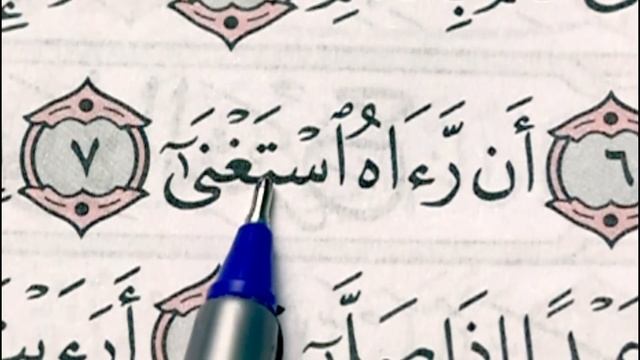 ٦ أَن رَّءَاهُ ٱسْتَغْنَىٰٓ ٧
عَبْدًا إِذَا صَلَّىٰٓ أَرَءَيْتَ